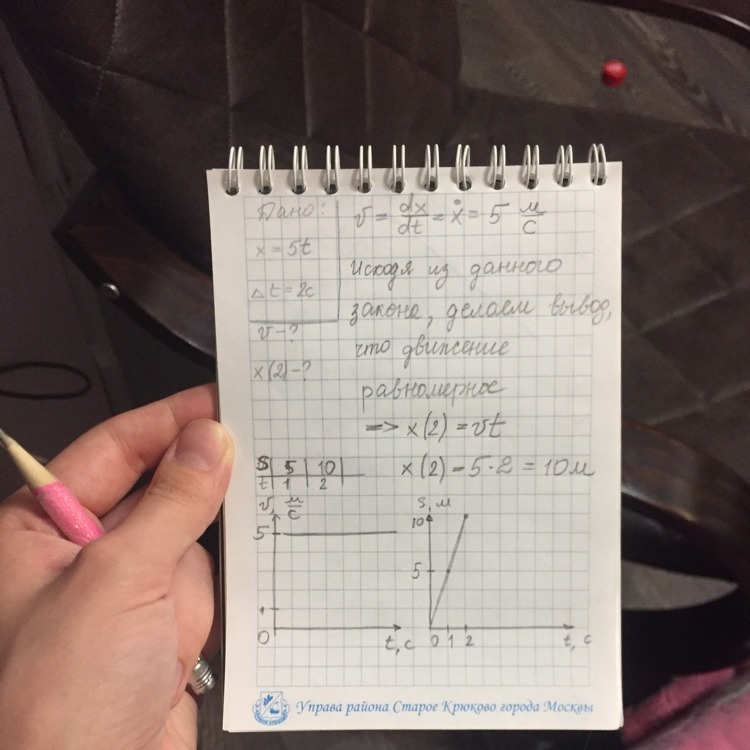 Дано:
x = 5t
Δt = 2c
v - ?
x(2) - ?
v = dx/dt = ẋ = 5 м/с
Исходя из данного
закона, делаем вывод,
что движение
равномерное
=> x(2) = vt
x(2) = 5·2 = 10м
S 5 10
t 1 2
v, м/с
5
1
0
t, c
S, м
10
5
0 1 2
t, c
Управа района Старое Крюково города Москвы